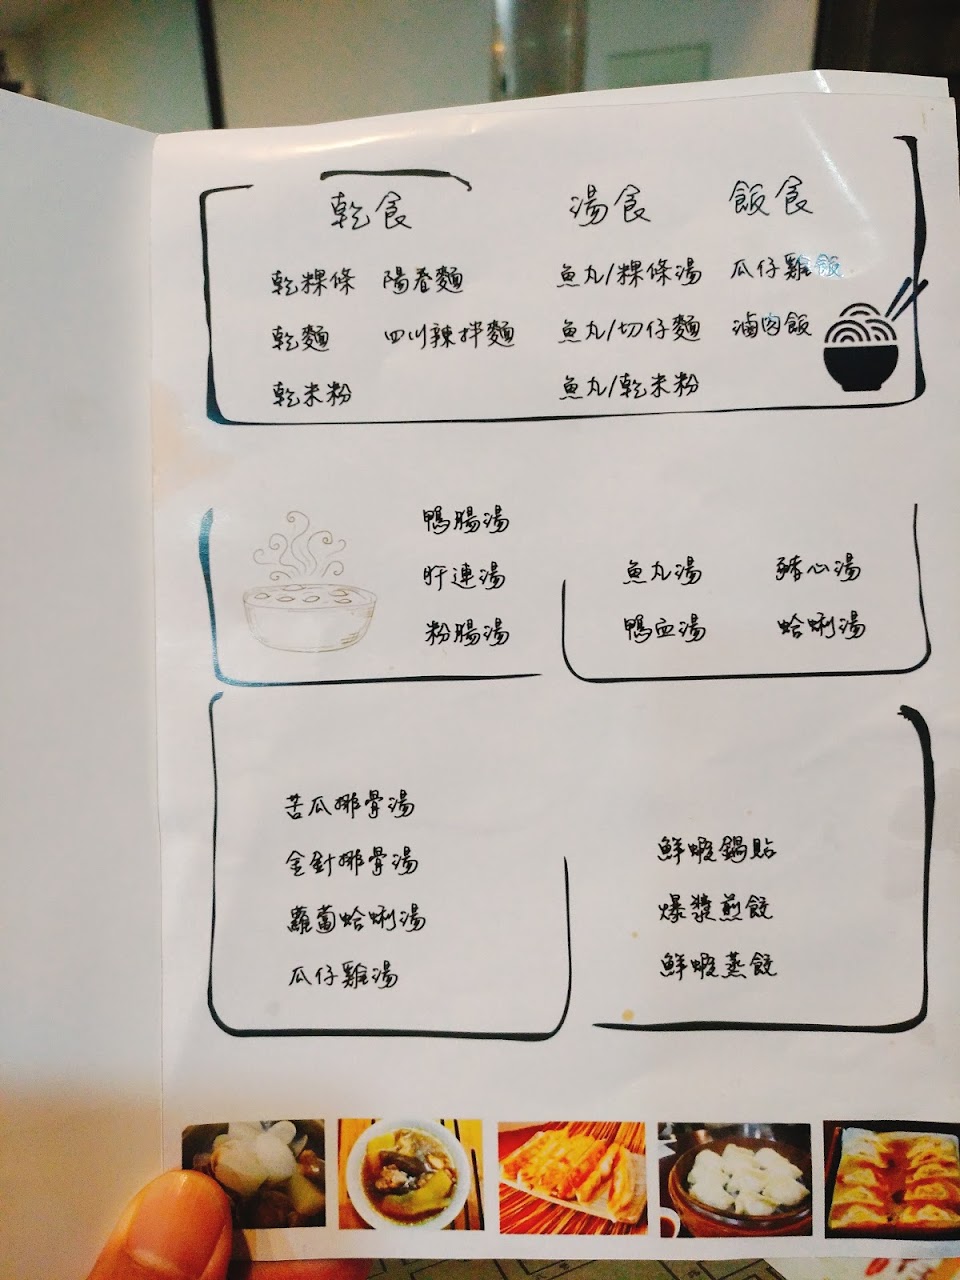 乾食 湯食 飯食
乾粿條 陽春麵 魚丸/粿條湯 瓜仔雞飯
乾麵 四川辣拌麵 魚丸/切仔麵 滷肉飯
乾米粉 魚丸/乾米粉
鴨腸湯
肝連湯
粉腸湯
魚丸湯 豬心湯
鴨血湯 蛤蜊湯
苦瓜排骨湯
金針排骨湯
蘿蔔蛤蜊湯
瓜仔雞湯
鮮蝦鍋貼
爆漿煎餃
鮮蝦蒸餃